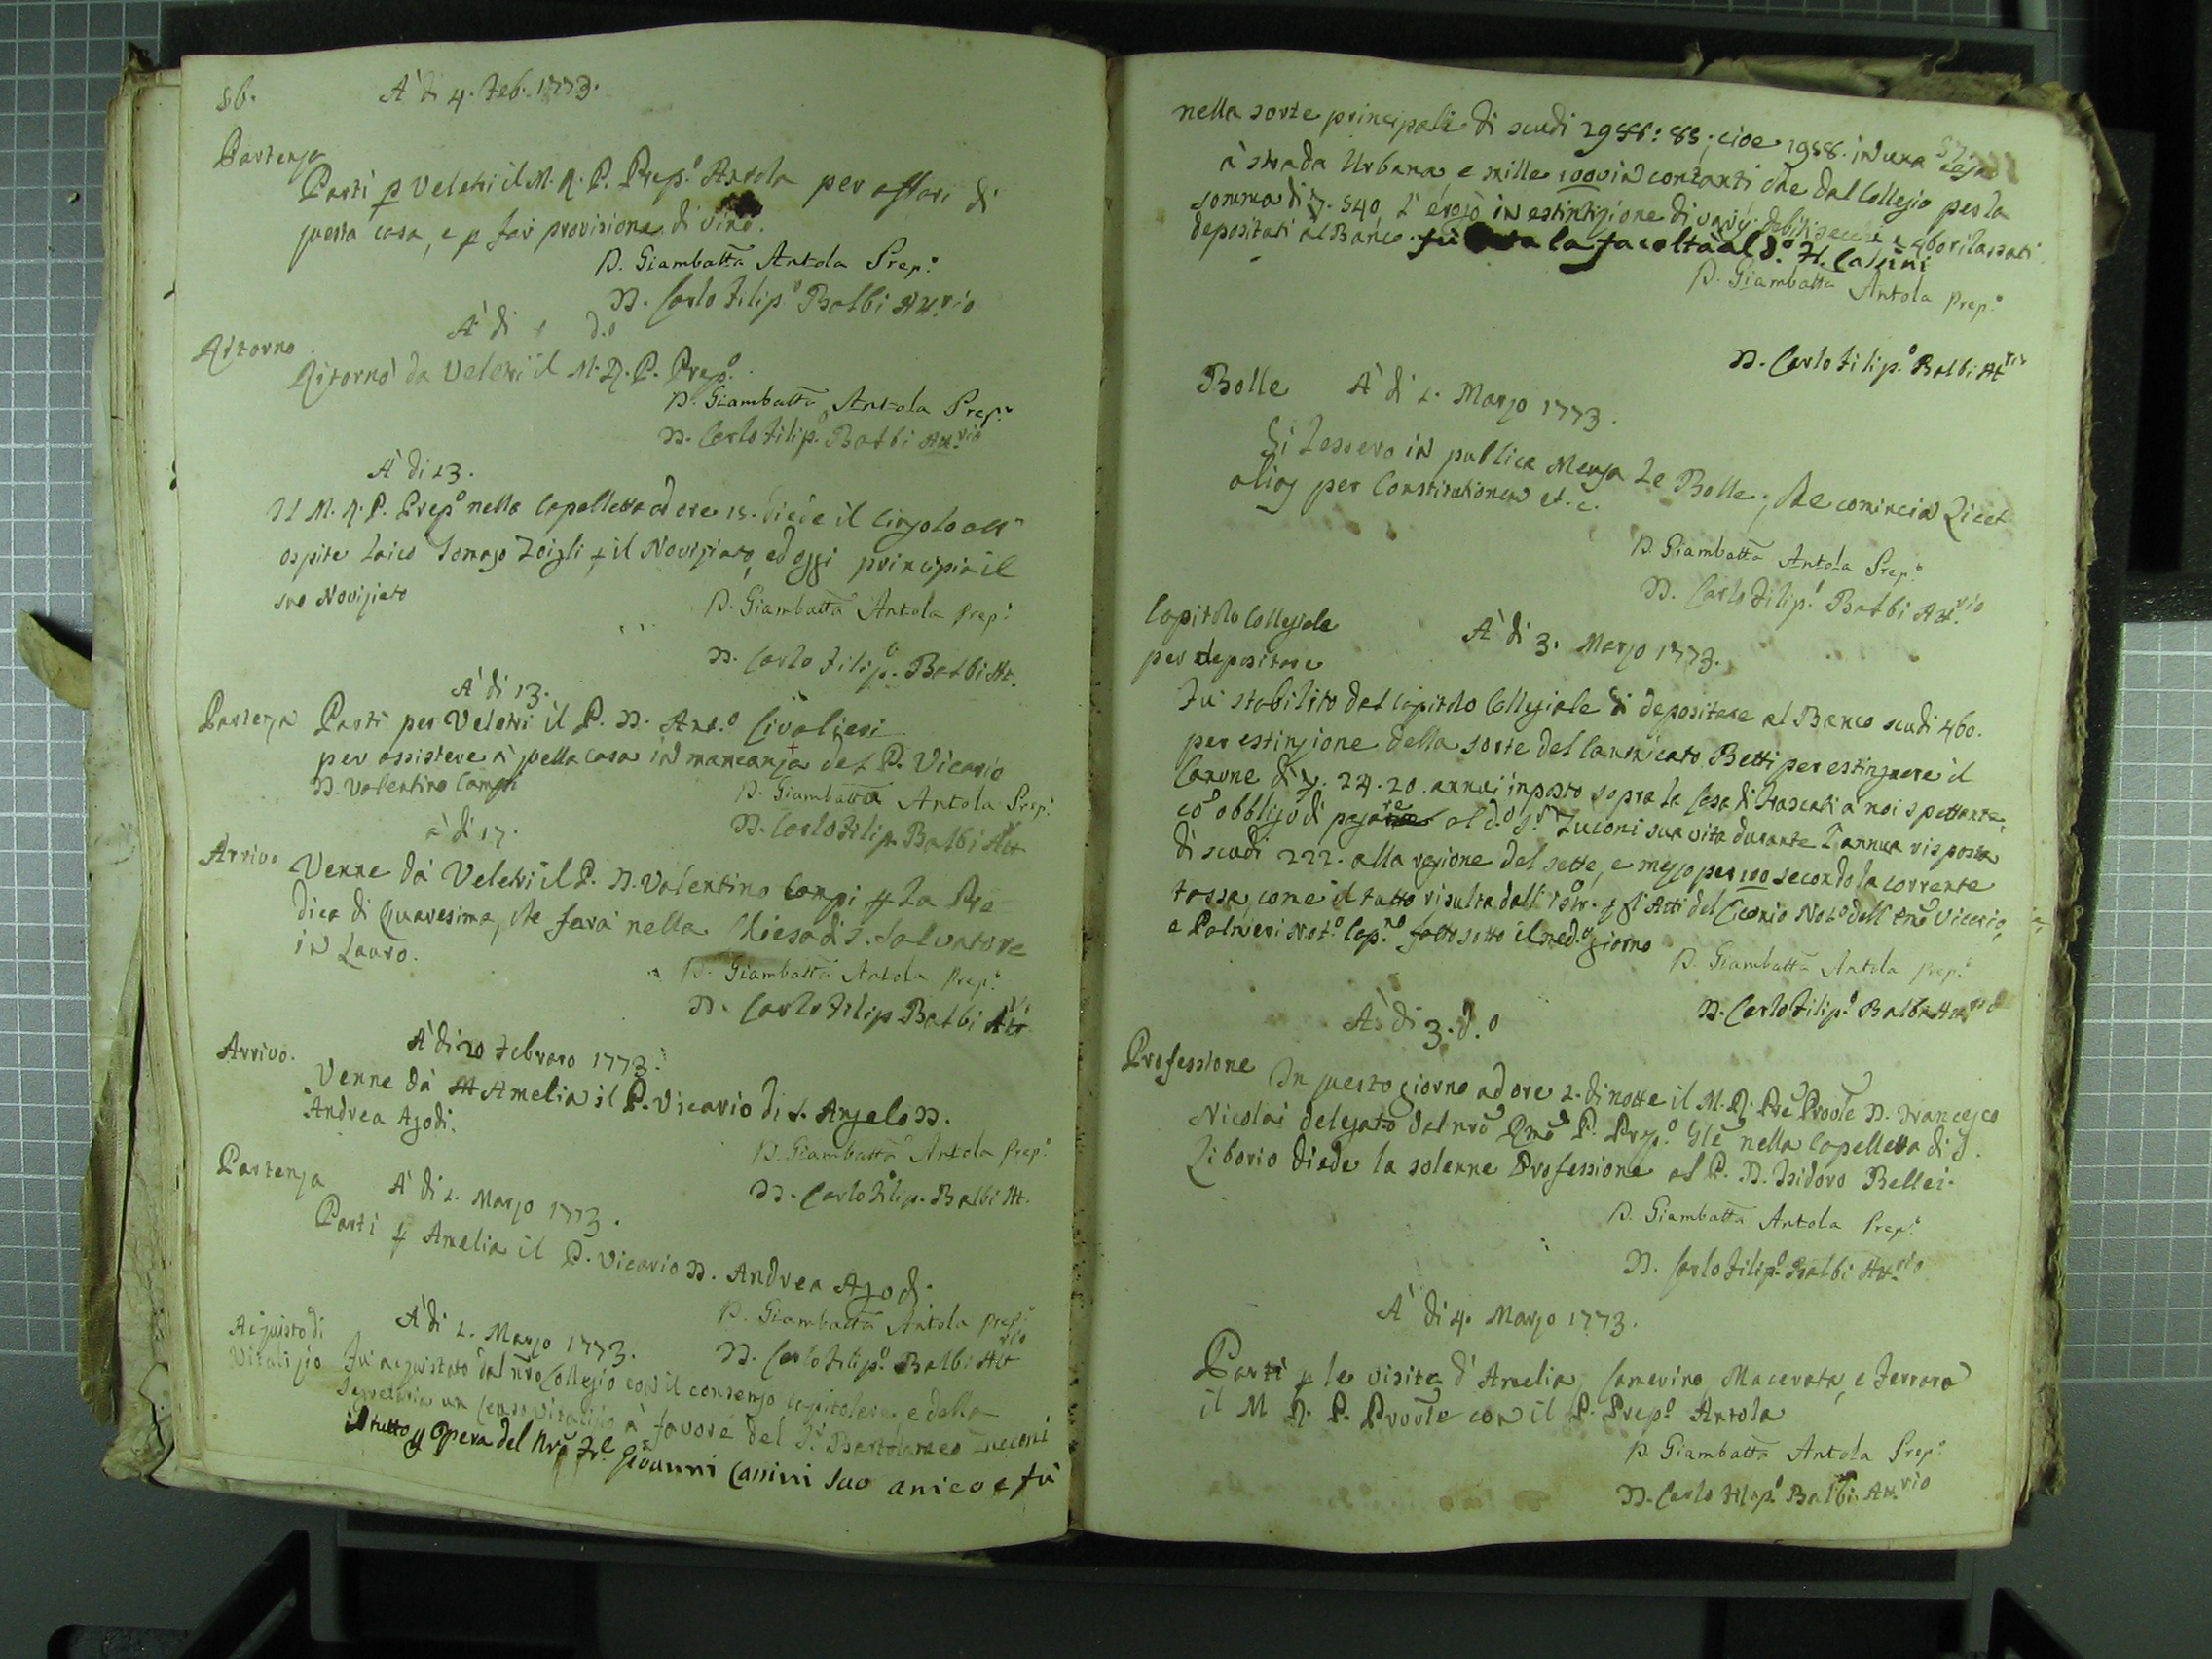 86.
A' di 4. Feb. 1773.
Partenza
Partì p Veletri il M. R. P. Prep.º Antola per affari di
questa casa, e p far provisione di vino.
D. Giambatta Antola Prep.º
D. Carlo Filip.º Balbi Att.rio
A' di d.º
Ritorno
Ritornò da Veletri il M. R. P. Prep.º
D. Giambatta Antola Prep.º
D. Carlo Filip.º Balbi Att.rio
A' di 13.
Il M. R. P. Prep.º nella Capelletta ad ore 15. diede il Cingolo all'
ospite laico Tomaso Zoigli p il Noviziato, ed oggi principia il
suo Noviziato
D. Giambatta Antola Prep.º
D. Carlo Filip.º Balbi Att.
A' di 13.
Partenza Partì per Veletri il P. D. Ant.º Civalieri
per assistere à quella casa in mancanza del P. Vicario
D. Valentino Campi
D. Giambatta Antola Prep.º
D. Carlo Filip. Balbi Att
a' di 17.
Arrivo Venne dà Veletri il P. D. Valentino Campi p la Pre
dica di Quaresima, che farà nella Chiesa di S. Salvatore
in Lauro.
D. Giambatta Antola Prep.º
D. Carlo Filip Balbi Att.
A' di 20 Febraro 1773.
Arrivo.
Venne dà Amelia il P. Vicario di S. Angelo D.
Andrea Azodi.
D. Giambatta Antola Prep.º
D. Carlo Filip. Balbi Att.
Partenza
A' di 2. Marzo 1773.
Partì p Amelia il P. Vicario D. Andrea Azodi.
D. Giambatta Antola Prep.º
D. Carlo Filip.º Balbi Att.rio
Acquisto di
Vitalizio
A' di 2. Marzo 1773.
Fu' acquistato dal nro Collegio con il consenso capitolare, e della
Segretaria un Censo vitalizio à favore del S.r Bartolomeo Zuconi
il tutto p Opera del Nro Fr.e Giovanni Canini suo amico e fù
nella sorte principale di scudi 2988: 85; cioe 1988. in una Casa
à strada Urbana, e mille 1000 in contanti che dal Collegio per la
somma di 540 l'erogò in estintizione di varij debiti e 460 rilassati
depositati al Banco. fù la facoltà al d.º F. Canini
D. Giambatta Antola Prep.º
D. Carlo Filip.º Balbi Att.rio
Bolle A' di 2. Marzo 1773.
Si lessero in publica Mensa le Bolle, che comincia Licet
alias per Constitutionem et. c.
D. Giambatta Antola Prep.º
D. Carlo Filip.º Balbi Att.rio
Capitolo Collegiale
per depositare
A' di 3. Marzo 1773.
Fu' stabilito dal Capitolo Collegiale di depositare al Banco scudi 460.
per estinzione della sorte del Canonicato Betti per estinguere il
Canone di 24. 20. annui imposto sopra la Casa di Frascati à noi spettante,
cō obbligo di pagare al d.º S.r Zuconi sua vita durante l'annua risposta
di scudi 222. alla ragione del sette, e mezzo per 100 secondo la corrente
tassa, come il tutto risulta dall' Istr. p gl'Atti del Not.º dell' Vicario,
e Palmieri Not.º Cap.no fatto sotto il med.º giorno
D. Giambatta Antola Prep.º
D. Carlo Filip.º Balbi Att.rio
A' di 3. d.º
Professione
In questo giorno ad ore 2. di notte il M. R. Pre Prōvle D. Francesco
Nicolai delegato dal nrō Rmō P. Prep.º Gle nella Capelletta di S.
Liborio diede la solenne Professione al P. D. Isidoro Bellei.
D. Giambatta Antola Prep.º
D. Carlo Filip.º Balbi Att.rio
A' di 4. Marzo 1773.
Partì p le visite d' Amelia, Camerino, Macerata, e Ferrara
il M. R. P. Provle con il P. Prep.º Antola
D. Giambatta Antola Prep.º
D. Carlo Filip.º Balbi Att.rio